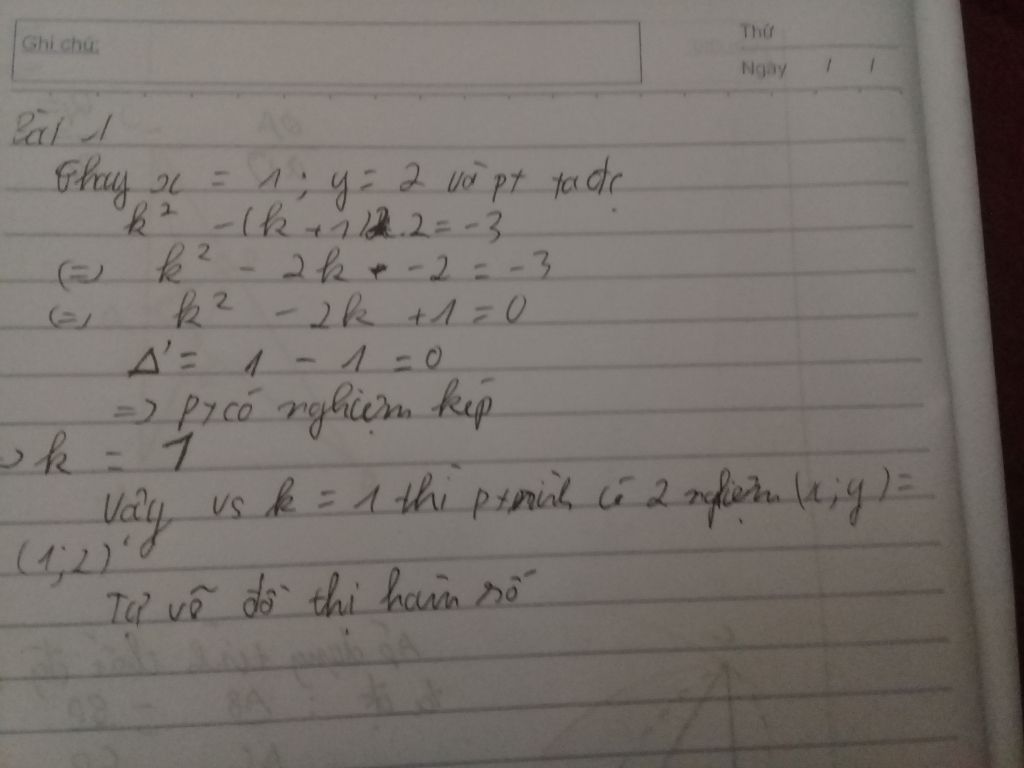 Ghi chú:
Thứ
Ngày / /
Bài 1
Thay x = 1; y = 2 và pt ta đc
k² - (k + 1).2 = -3
(=) k² - 2k - 2 = -3
(=) k² - 2k + 1 = 0
Δ' = 1 - 1 = 0
=> pt có nghiệm kép
=> k = 1
Vậy vs k = 1 thì pt có 2 nghiệm (x; y) =
(1; 2)
Tự vẽ đồ thi hàm số